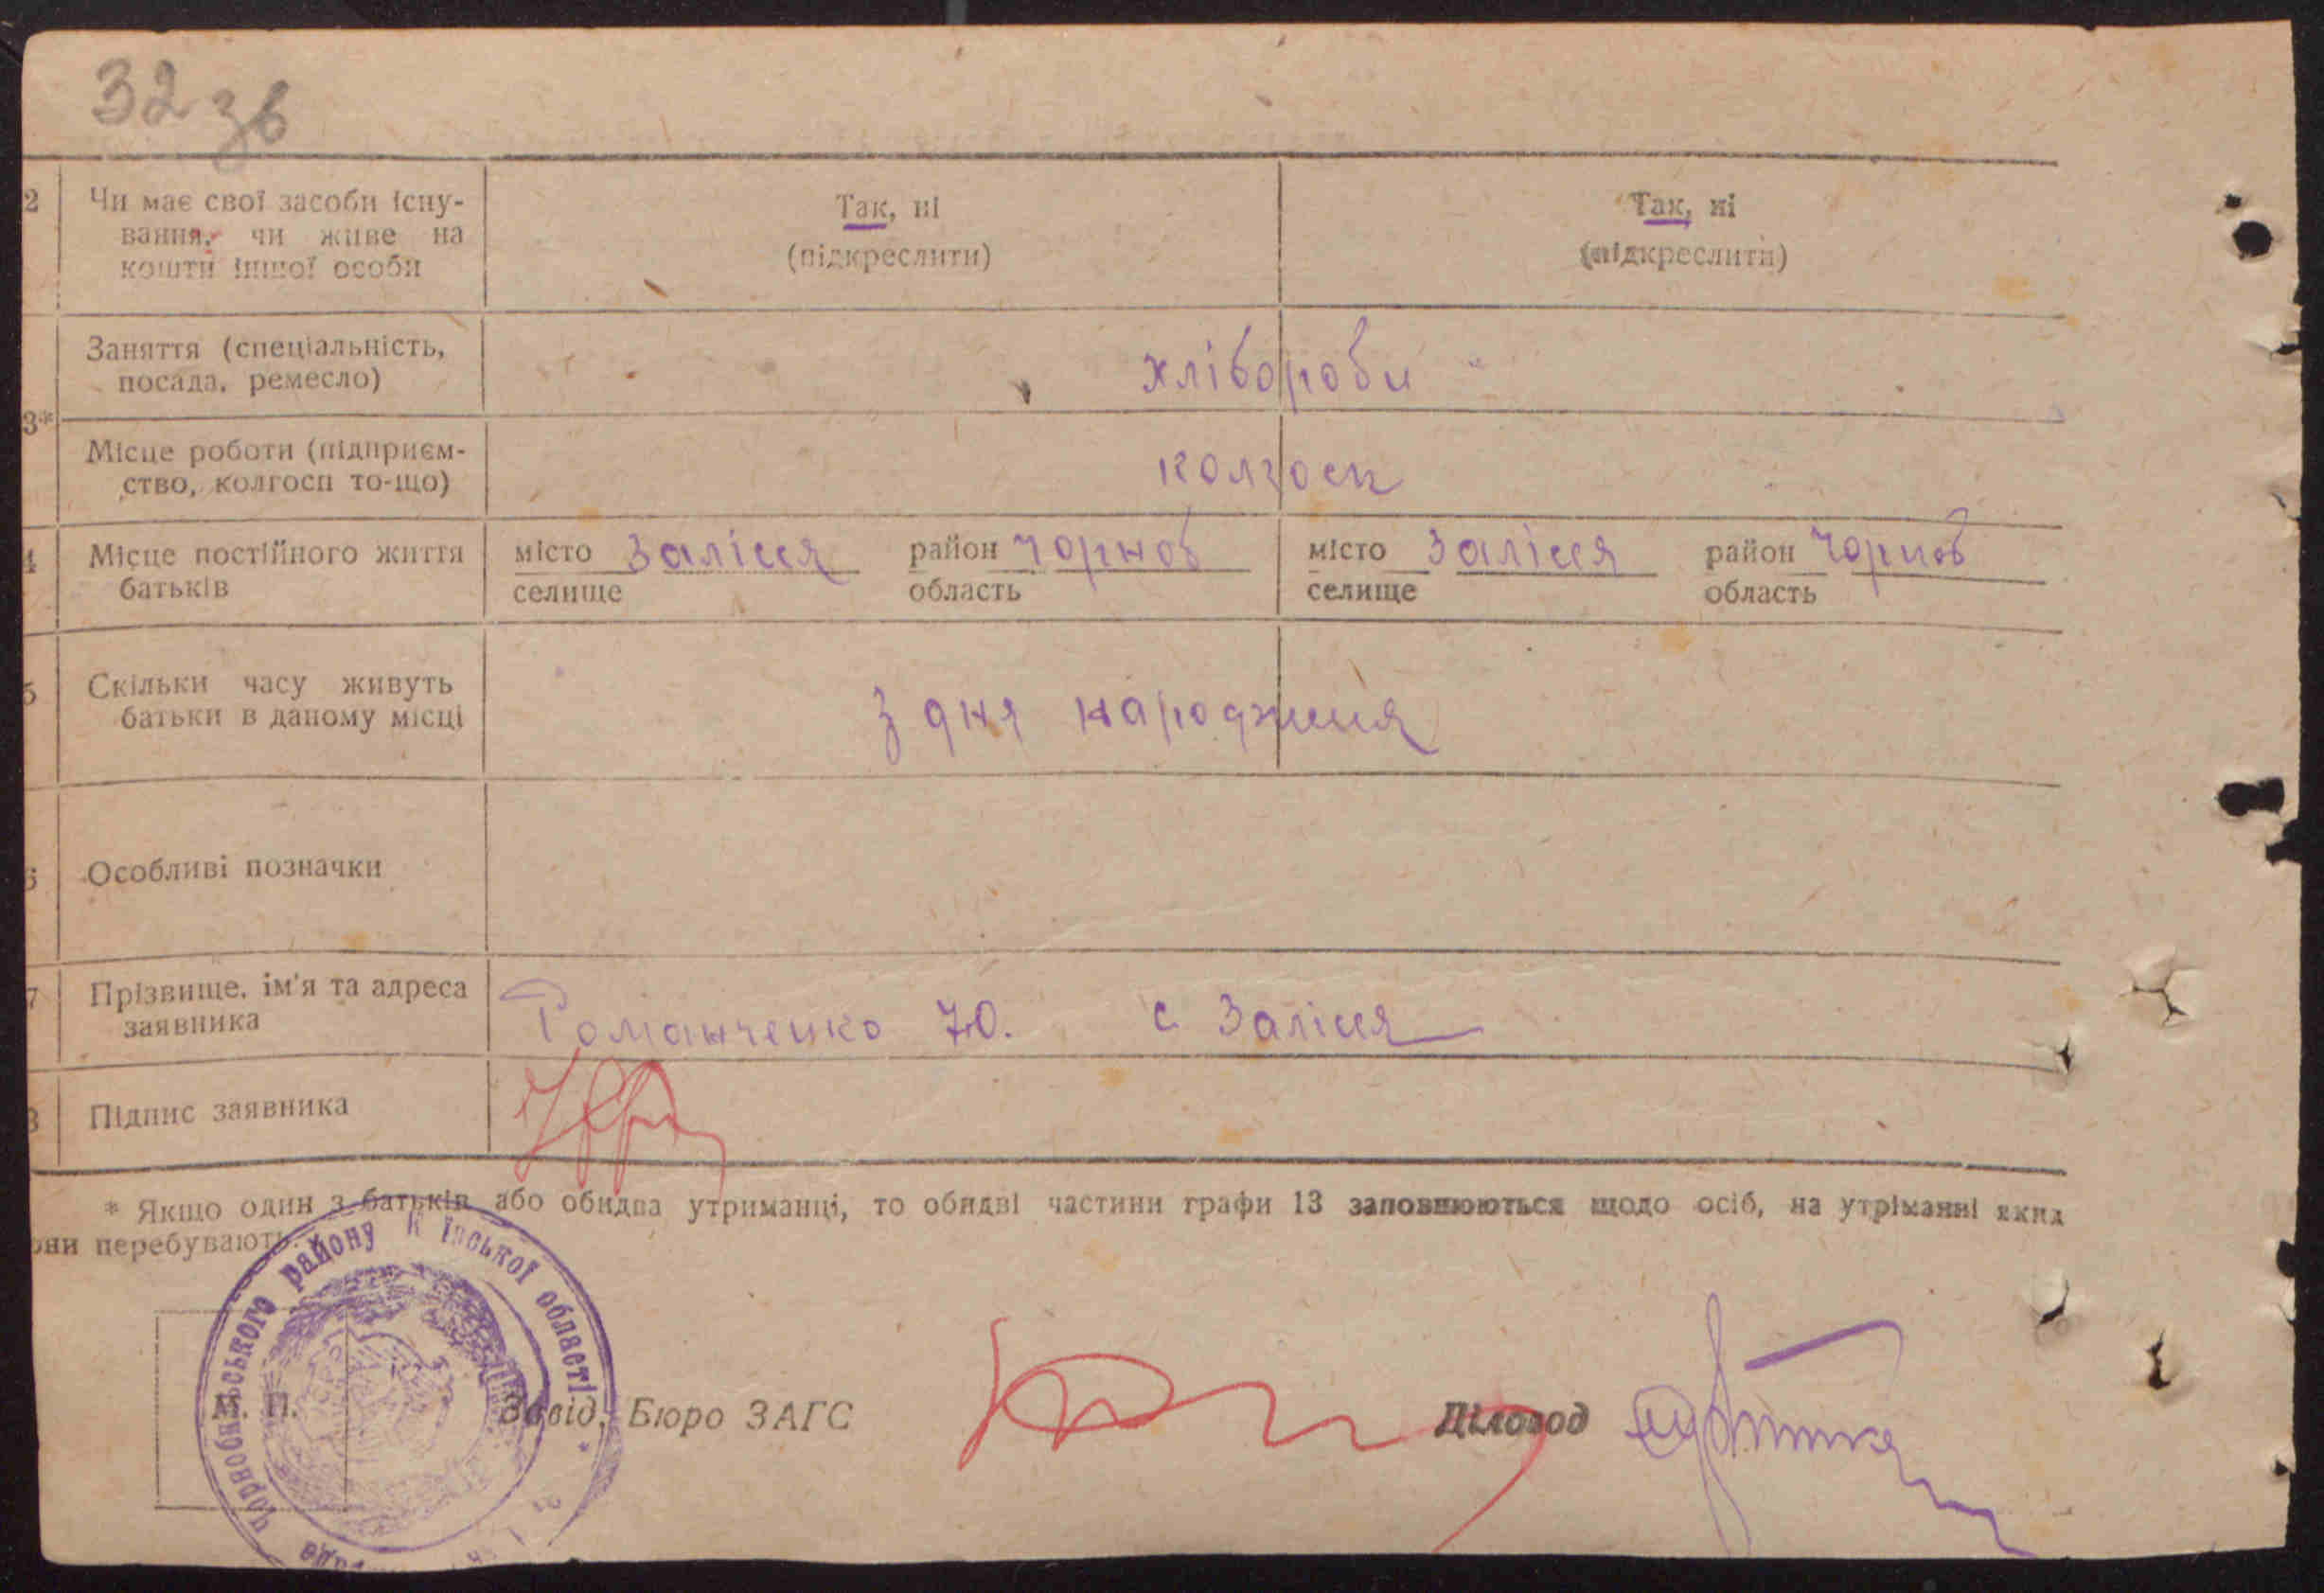 32 зв
2 Чи має свої засоби існу- Так, ні Так, ні
вання, чи живе на (підкреслити) (підкреслити)
кошти іншої особи
Заняття (спеціальність, хлібороби
посада, ремесло)
3*
Місце роботи (підприєм- колгосп
ство, колгосп то-що)
4 Місце постійного життя місто Залісся район Чорноб місто Залісся район Чорноб
батьків селище область селище область
5 Скільки часу живуть з дня народженя
батьки в даному місці
6 Особливі позначки
7 Прізвище, ім'я та адреса Романченко Ю. с Залісся
заявника
8 Підпис заявника
* Якщо один з батьків або обидва утриманці, то обидві частини графи 13 заповнюються щодо осіб, на утріманні яких
они перебувають.
Чорнобильського району Київської області
М. П. Завід. Бюро ЗАГС Діловод